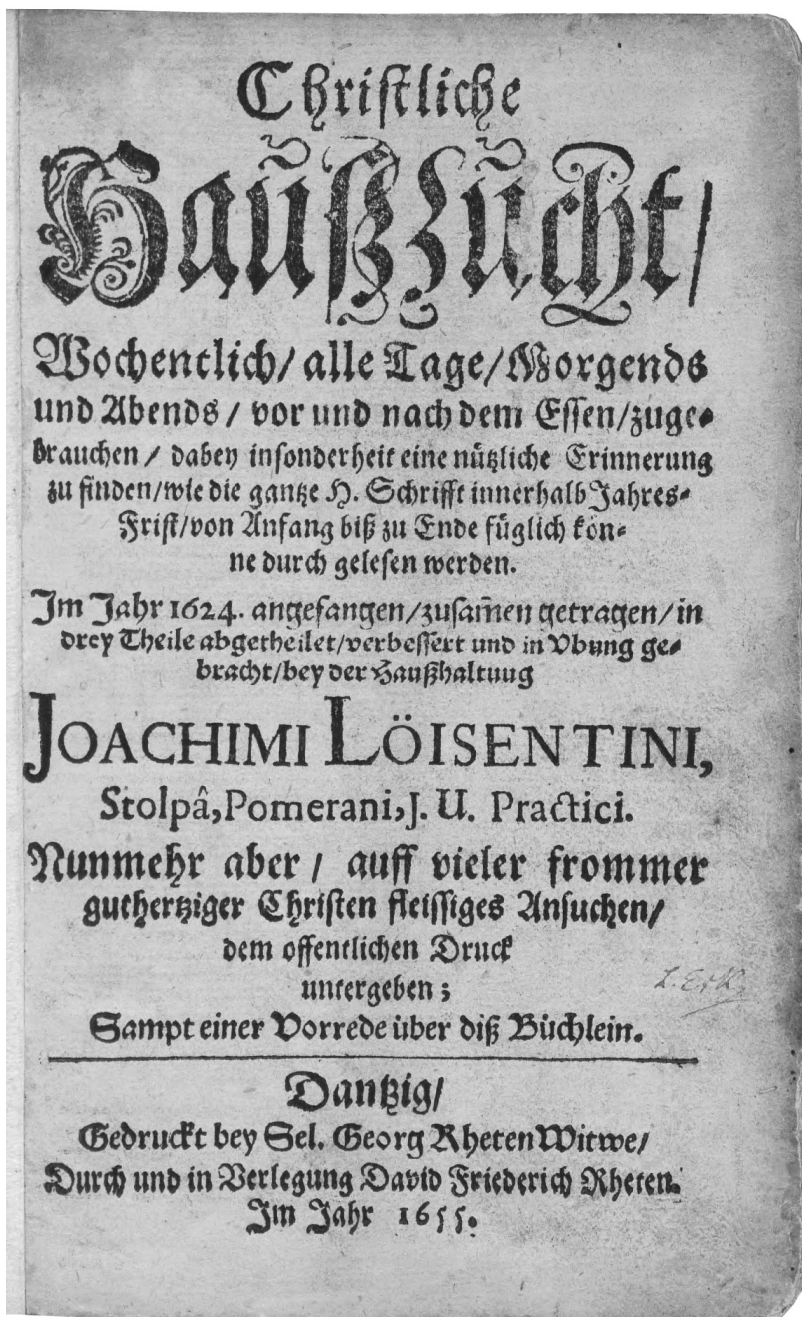 Christliche
Haußzucht/
Wochentlich/ alle Tage/ Morgends
und Abends/ vor und nach dem Essen/zuge-
brauchen/ dabey insonderheit eine nützliche Erinnerung
zu finden/wie die gantze H. Schrifft innerhalb Jahres-
Frist/von Anfang biß zu Ende füglich kön-
ne durch gelesen werden.
Im Jahr 1624. angefangen/zusam̃en getragen/in
drey Theile abgetheilet/verbessert und in Vbung ge-
bracht/bey der Haußhaltung
JOACHIMI LÖISENTINI,
Stolpâ, Pomerani, J. U. Practici.
Nunmehr aber/ auff vieler frommer
guthertziger Christen fleissiges Ansuchen/
dem offentlichen Druck
untergeben;
Sampt einer Vorrede über diß Büchlein.
L. Erk
Dantzig/
Gedruckt bey Sel. Georg Rheten Witwe/
Durch und in Verlegung David Friederich Rheten.
Im Jahr 1655.